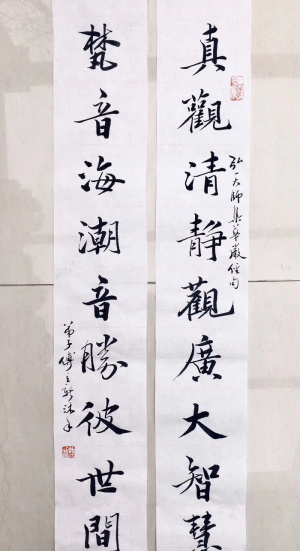 真觀清靜觀廣大智慧
弘一大師集華嚴經句
梵音海潮音勝彼世間
弟子 沐手